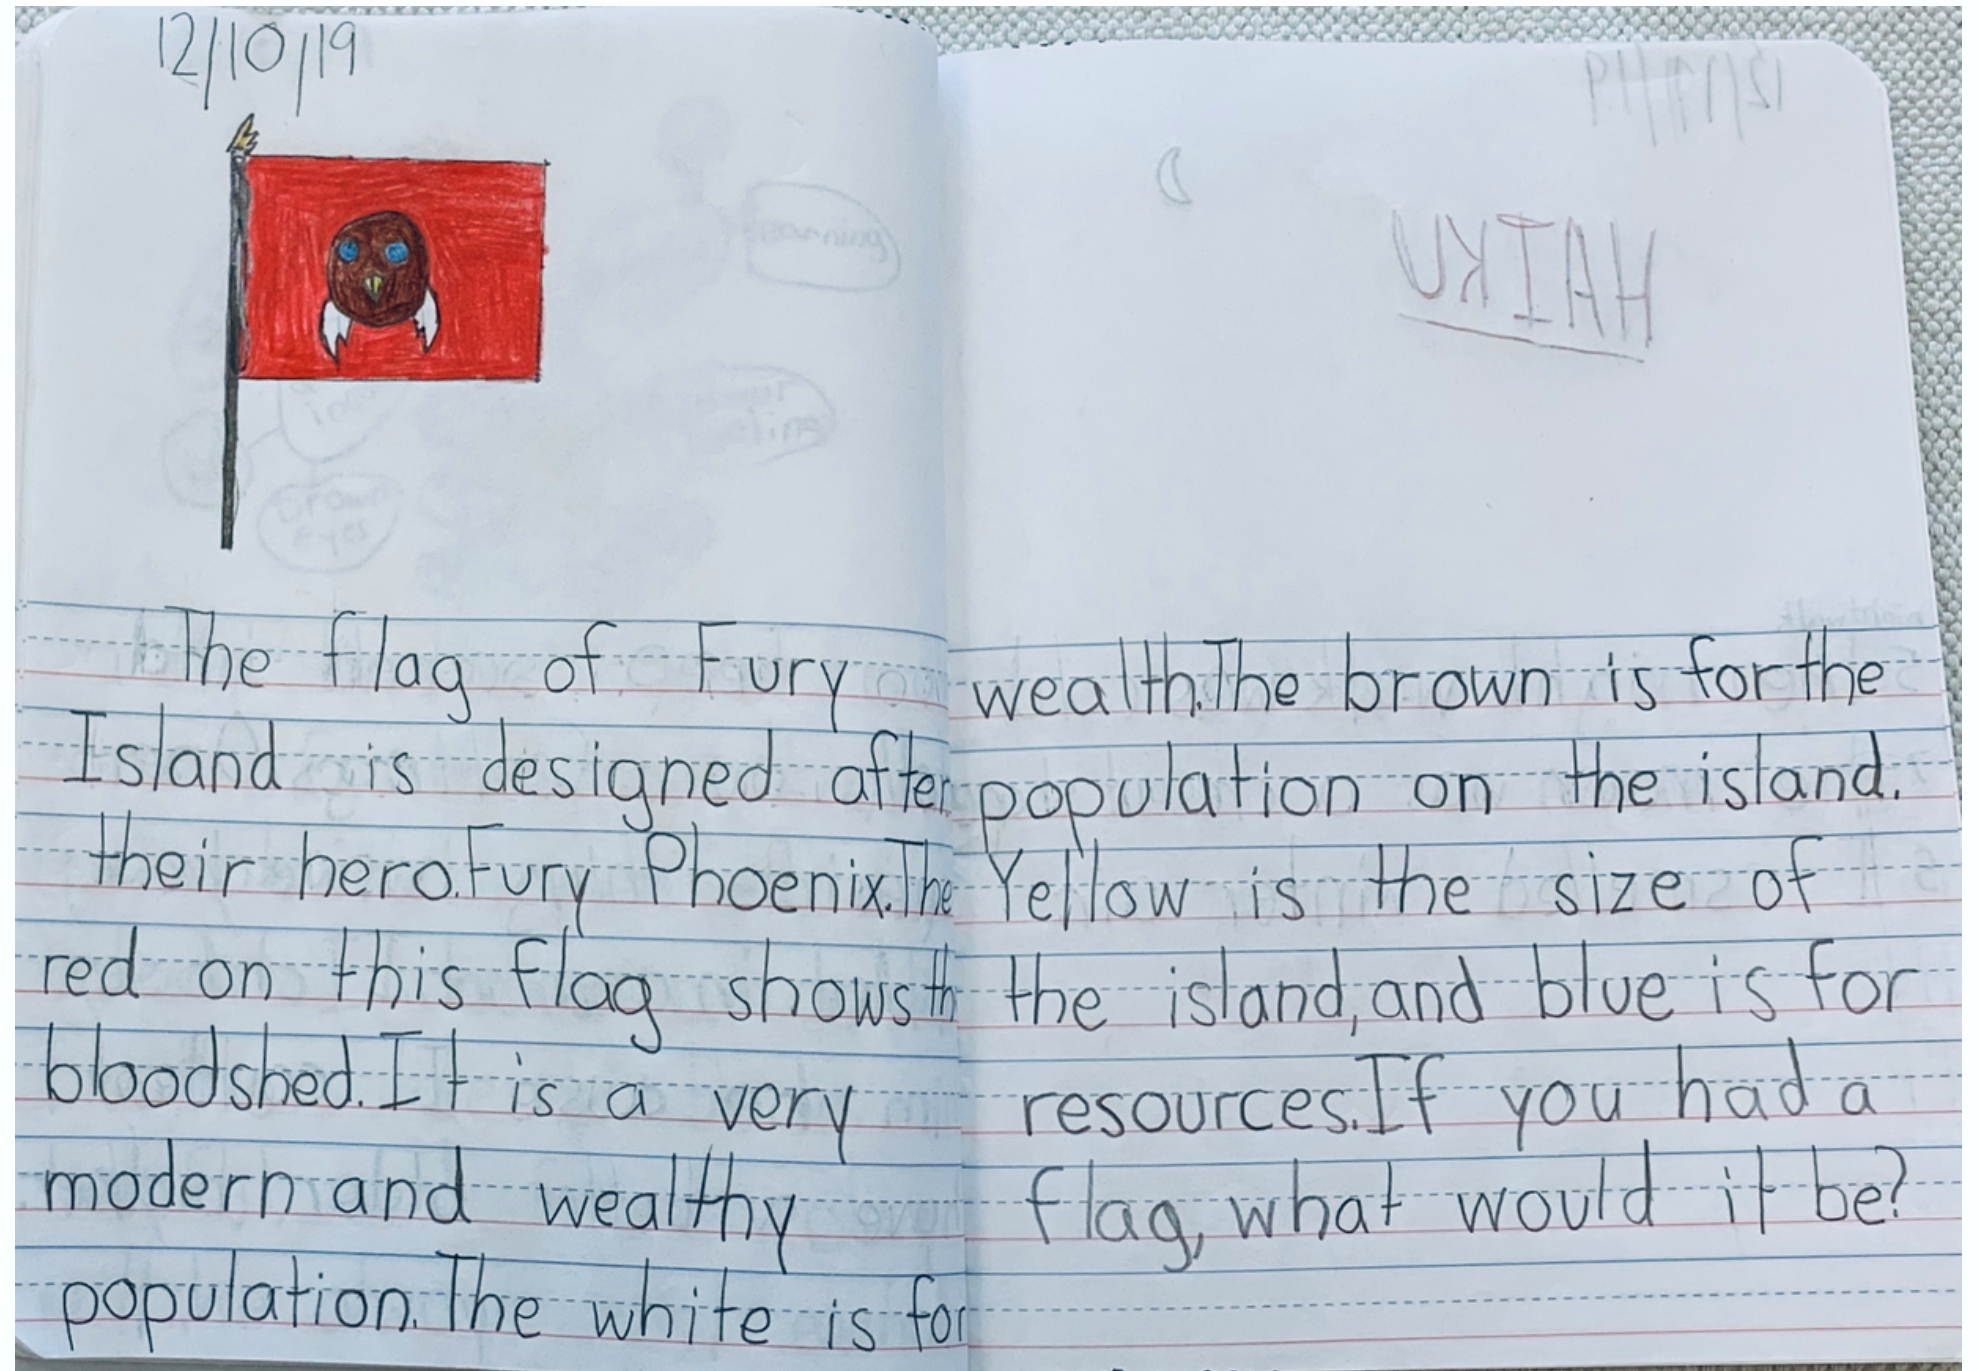 12/10/19
The flag of Fury
Island is designed after
their hero.Fury Phoenix.The
red on this flag shows th
bloodshed.It is a very
modern and wealthy
population.The white is for
HAIKU
wealth.The brown is for the
population on the island.
Yellow is the size of
the island,and blue is for
resources.If you had a
flag, what would it be?